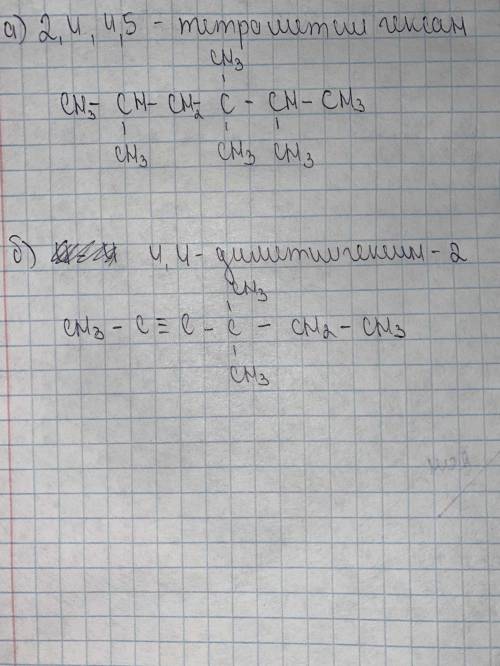 а) 2,4,4,5 - тетраметил гексан
CH3
CH3 - CH - CH2 - C - CH - CH3
CH3 CH3 CH3
б) 4,4 - диметилгексин - 2
CH3
CH3 - C ≡ C - C - CH2 - CH3
CH3